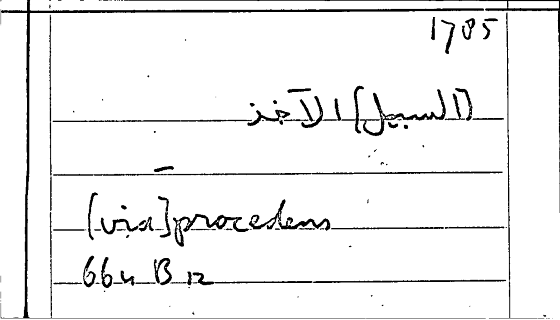 1785
(السبيل) الآخذ
–
(via) procedens
664 B 12